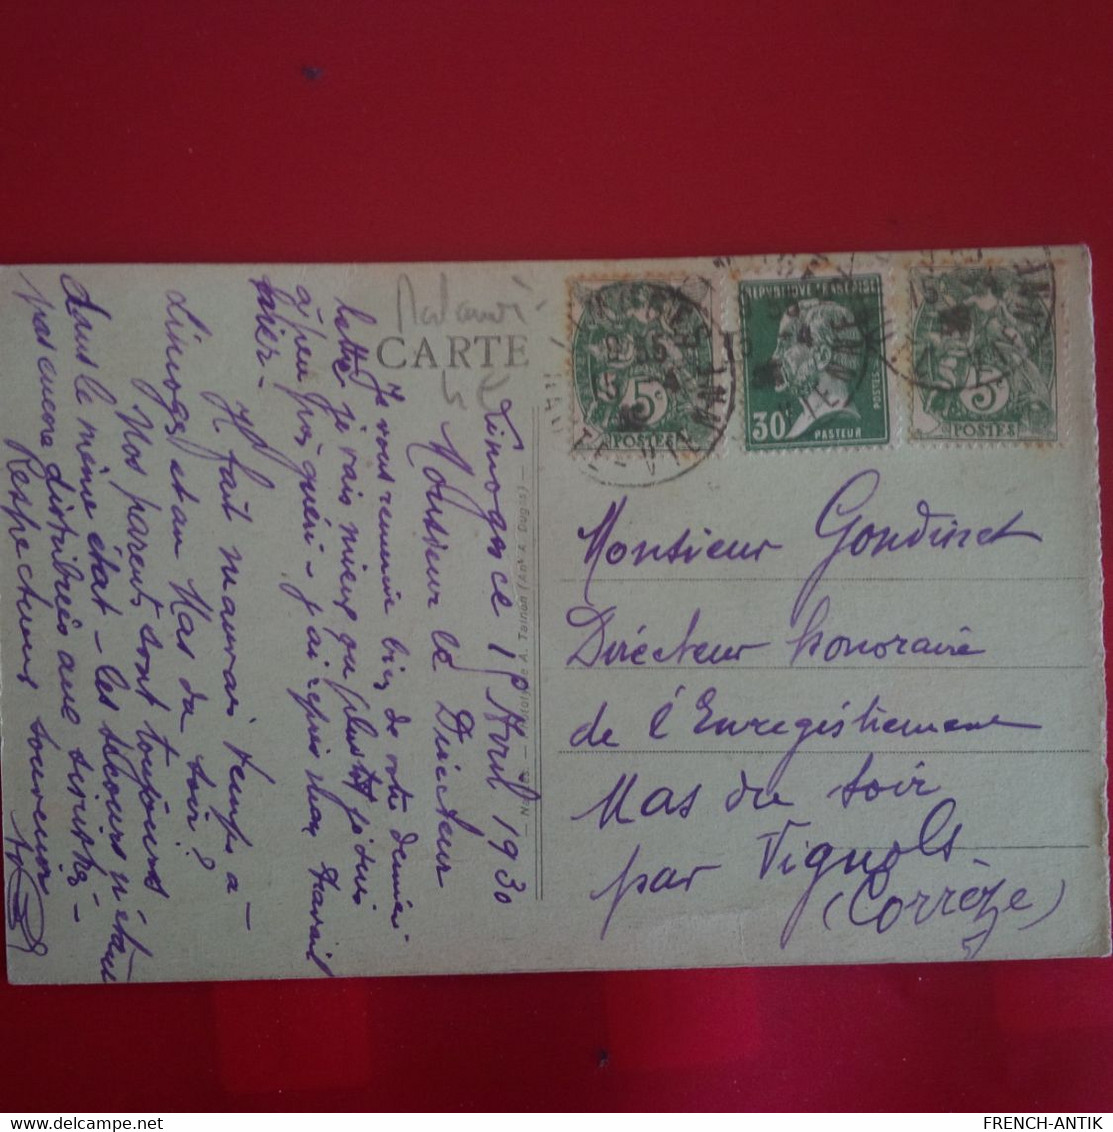 Madame
CARTE
Limoges ce 15 Avril 1930
Monsieur le Directeur
Je vous remercie bien de votre dernière
lettre je vais mieux je suis
à peu près guéri - j'ai repris mon travail
hier -
Il fait mauvais temps à
Limoges et au Mas du Soir?
Nos parents sont toujours
dans le même état - les secours n'étant
pas encore distribués aux sinistrés -
Respectueux souvenir
RÉPUBLIQUE FRANÇAISE
5c
POSTES
30c
PASTEUR
POSTES
5c
POSTES
HAUTE-VIENNE
Monsieur Gondinet
Directeur honoraire
de l'Enregistrement
Mas du Soir
par Vignols
(Corrèze)
FRENCH-ANTIK